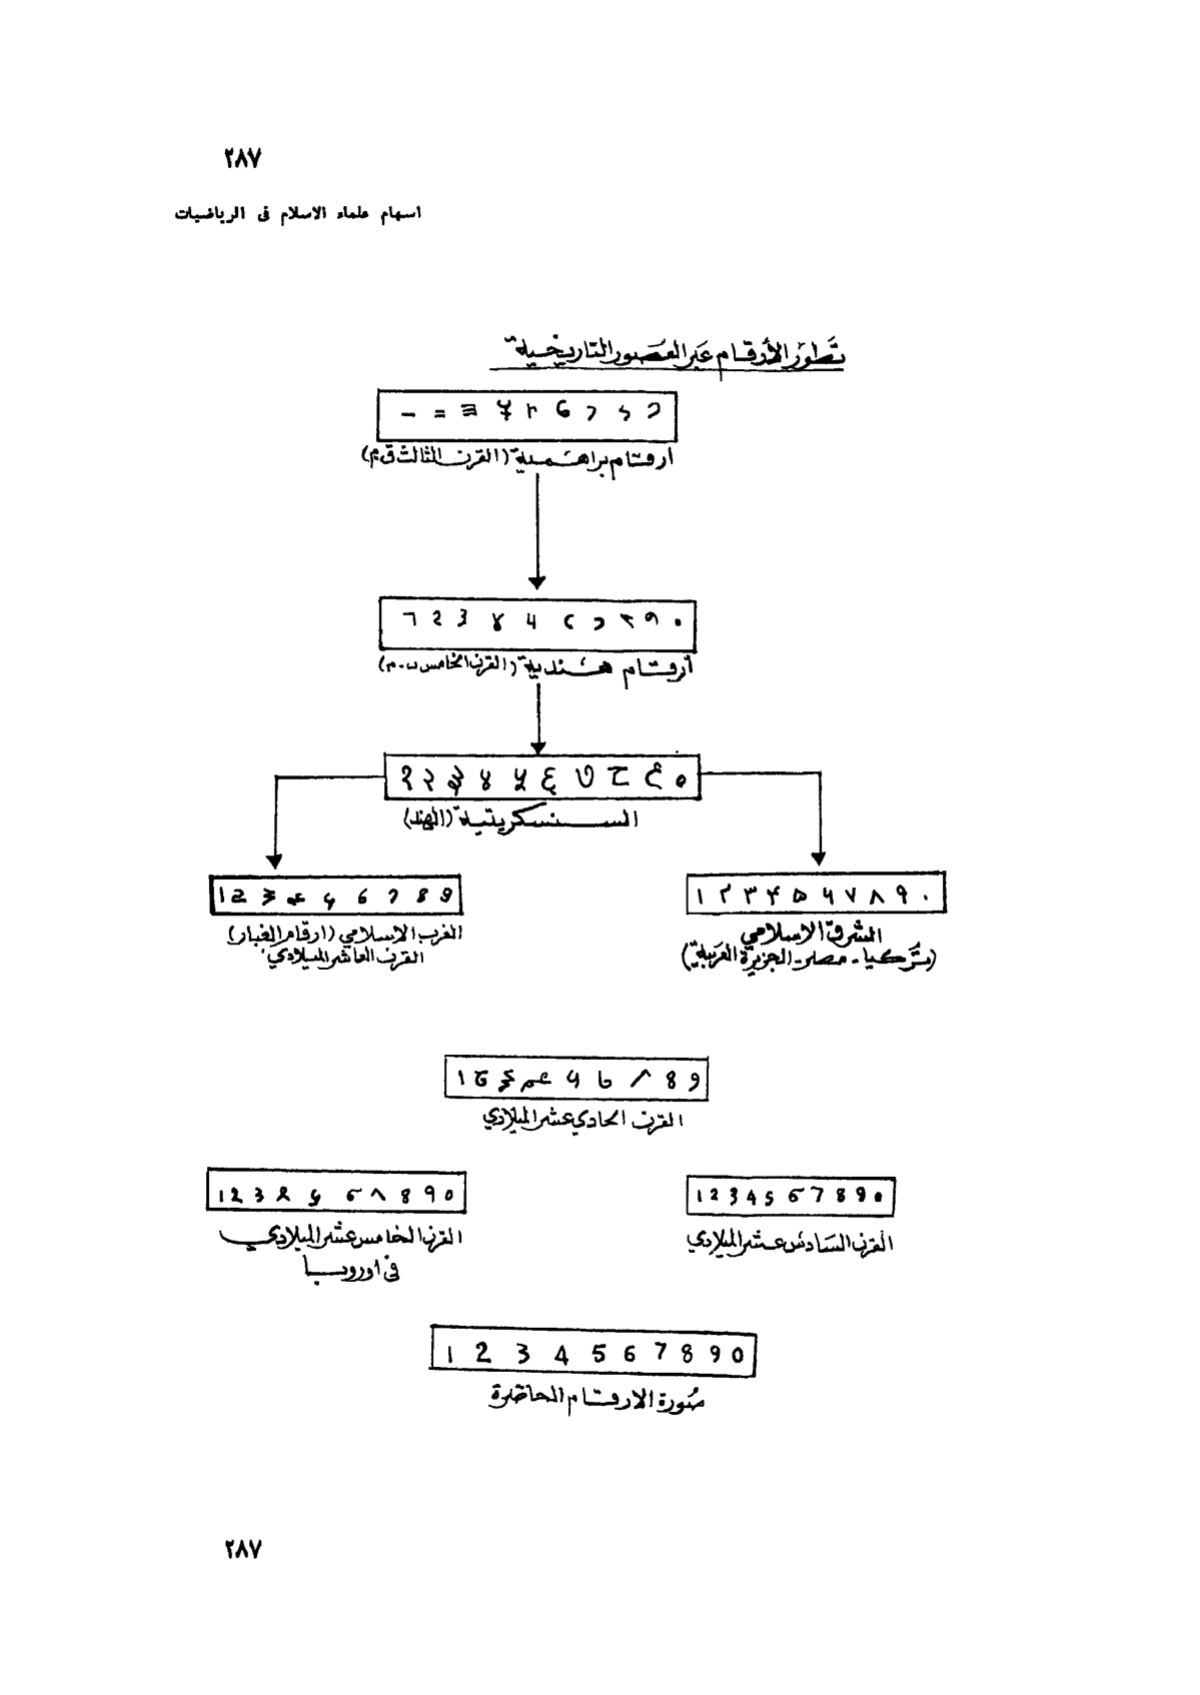 ٢٨٧
أسهام علماء الاسلام فى الرياضيات
تَطوّر الأرقام عَبر العُصور التاريخية
أرقام براهمية (القرن الثالث ق.م)
أرقام هندية (القرن الخامس ب.م)
१ २ ३ ४ ५ ६ ७ ८ ९ ०
السنسكريتية (الهند)
1 2 3 4 5 6 7 8 9
١ ٢ ٣ ۴ ۵ ۶ ٧ ٨ ٩ ٠
الغرب الاسلامي (ارقام الغبار)
القرن العاشر الميلادي
الشرق الاسلامي
(تُركيا - مصر - الجزيرة العَربية)
القرن الحادي عشر الميلادي
1 2 3 4 5 6 7 8 9 0
القرن الخامس عشر الميلادي
فى اوروبا
1 2 3 4 5 6 7 8 9 0
القرن السَادس عشر الميلادي
1 2 3 4 5 6 7 8 9 0
صُورة الارقام الحاضرة
٢٨٧